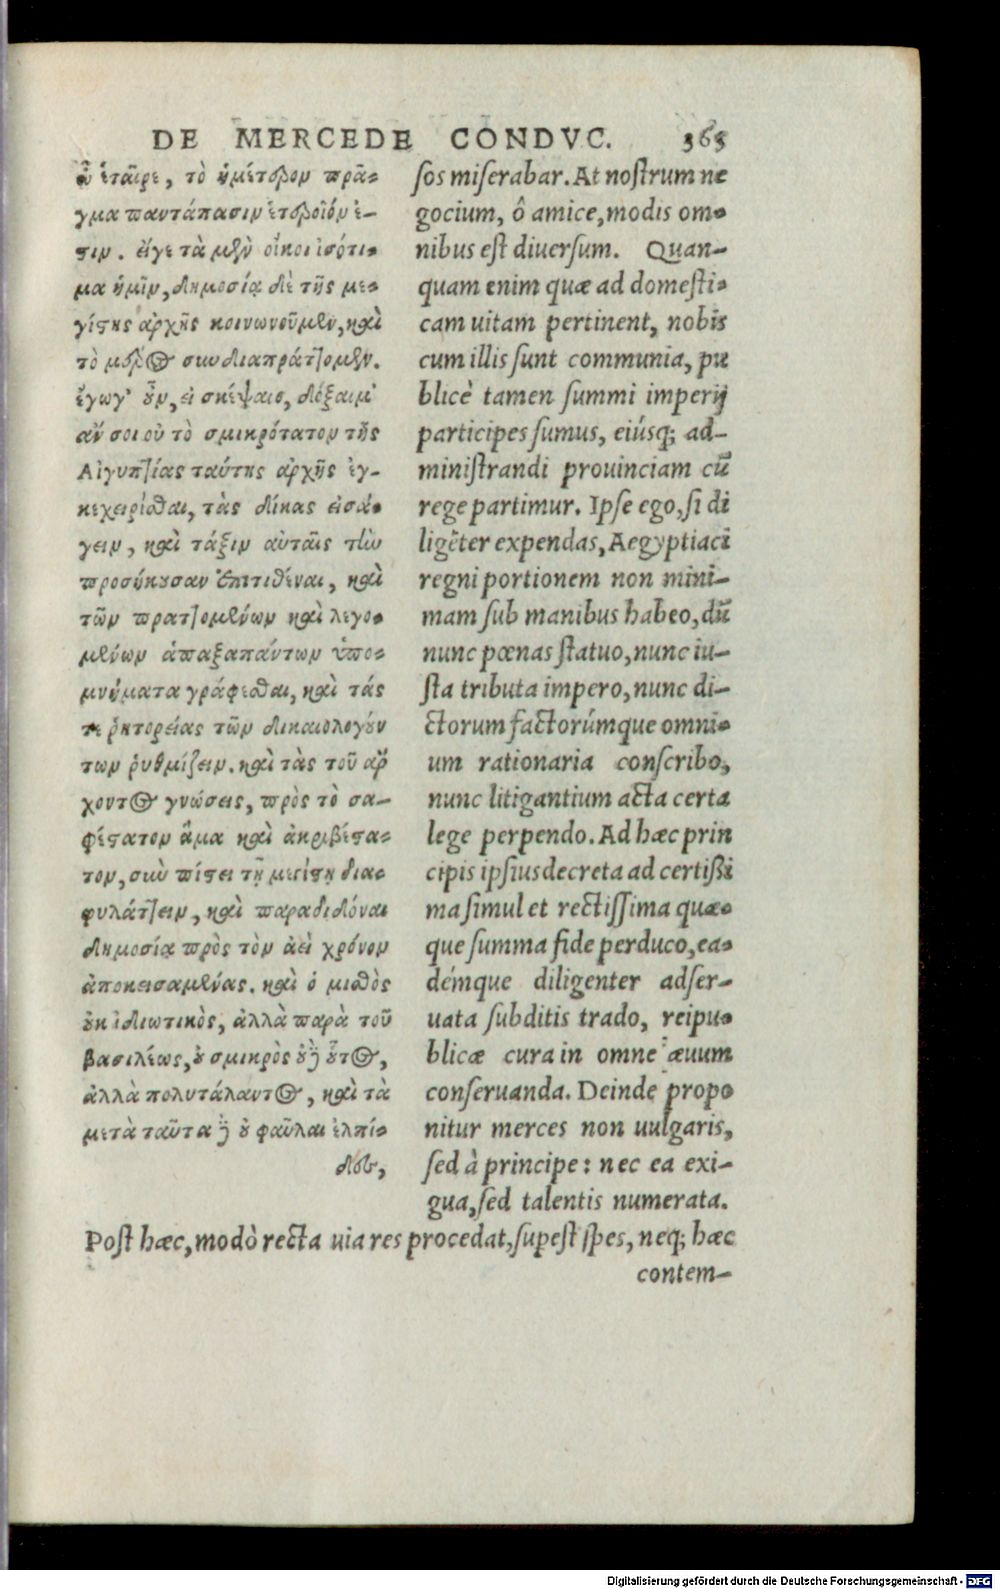 DE MERCEDE CONDVC. 365
ὦ ἑταῖρε, τὸ ἡμέτερον πρᾶ-
γμα παντάπασιν ἑτεροῖόν ἐ-
στιν. εἴγε τὰ μὲν οἴκοι ἰσότι-
μα ἡμῖν, δημοσίᾳ δὲ τῆς με-
γίστης ἀρχῆς κοινωνοῦμεν, καὶ
τὸ μέρος συνδιαπράττομεν.
ἔγωγ' οὖν, εἰ σκέψαιο, δόξαιμ'
ἄν σοι οὐ τὸ σμικρότατον τῆς
Αἰγυπτίας ταύτης ἀρχῆς ἐγ-
κεχειρίσθαι, τὰς δίκας εἰσά-
γειν, καὶ τάξιν αὐταῖς τὴν
προσήκουσαν ἐπιτιθέναι, καὶ
τῶν πραττομένων καὶ λεγο-
μένων ἁπαξαπάντων ὑπο-
μνήματα γράφεσθαι, καὶ τάς
τε ῥητορείας τῶν δικαιολογούν
των ῥυθμίζειν. καὶ τὰς τοῦ ἄρ
χοντος γνώσεις, πρὸς τὸ σα-
φέστατον ἅμα καὶ ἀκριβέστα-
τον, σὺν πίστει τῇ μεγίστῃ δια-
φυλάττειν, καὶ παραδιδόναι
δημοσίᾳ πρὸς τὸν ἀεὶ χρόνον
ἀποκεισομένας. καὶ ὁ μισθὸς
οὐκ ἰδιωτικὸς, ἀλλὰ παρὰ τοῦ
βασιλέως, οὐ σμικρὸς οὐδὲ οὗτος,
ἀλλὰ πολυτάλαντος, καὶ τὰ
μετὰ ταῦτα δὲ οὐ φαῦλαι ἐλπί-
δες,
sos miserabar. At nostrum ne
gocium, ô amice, modis om-
nibus est diuersum. Quan-
quam enim quæ ad domesti-
cam uitam pertinent, nobis
cum illis sunt communia, pu
blicè tamen summi imperij
participes sumus, eiúsq; ad-
ministrandi prouinciam cũ
rege partimur. Ipse ego, si di
ligẽter expendas, Aegyptiaci
regni portionem non mini-
mam sub manibus habeo, dũ
nunc pœnas statuo, nunc iu-
sta tributa impero, nunc di-
ctorum factorúmque omni-
um rationaria conscribo,
nunc litigantium acta certa
lege perpendo. Ad hæc prin
cipis ipsius decreta ad certißi
ma simul et rectissima quæ-
que summa fide perduco, ea-
démque diligenter adser-
uata subditis trado, reipu-
blicæ cura in omne æuum
conseruanda. Deinde propo
nitur merces non uulgaris,
sed à principe: nec ea exi-
gua, sed talentis numerata.
Post hæc, modò recta uia res procedat, supest spes, neq; hæc
contem-
Digitalisierung gefördert durch die Deutsche Forschungsgemeinschaft - DFG